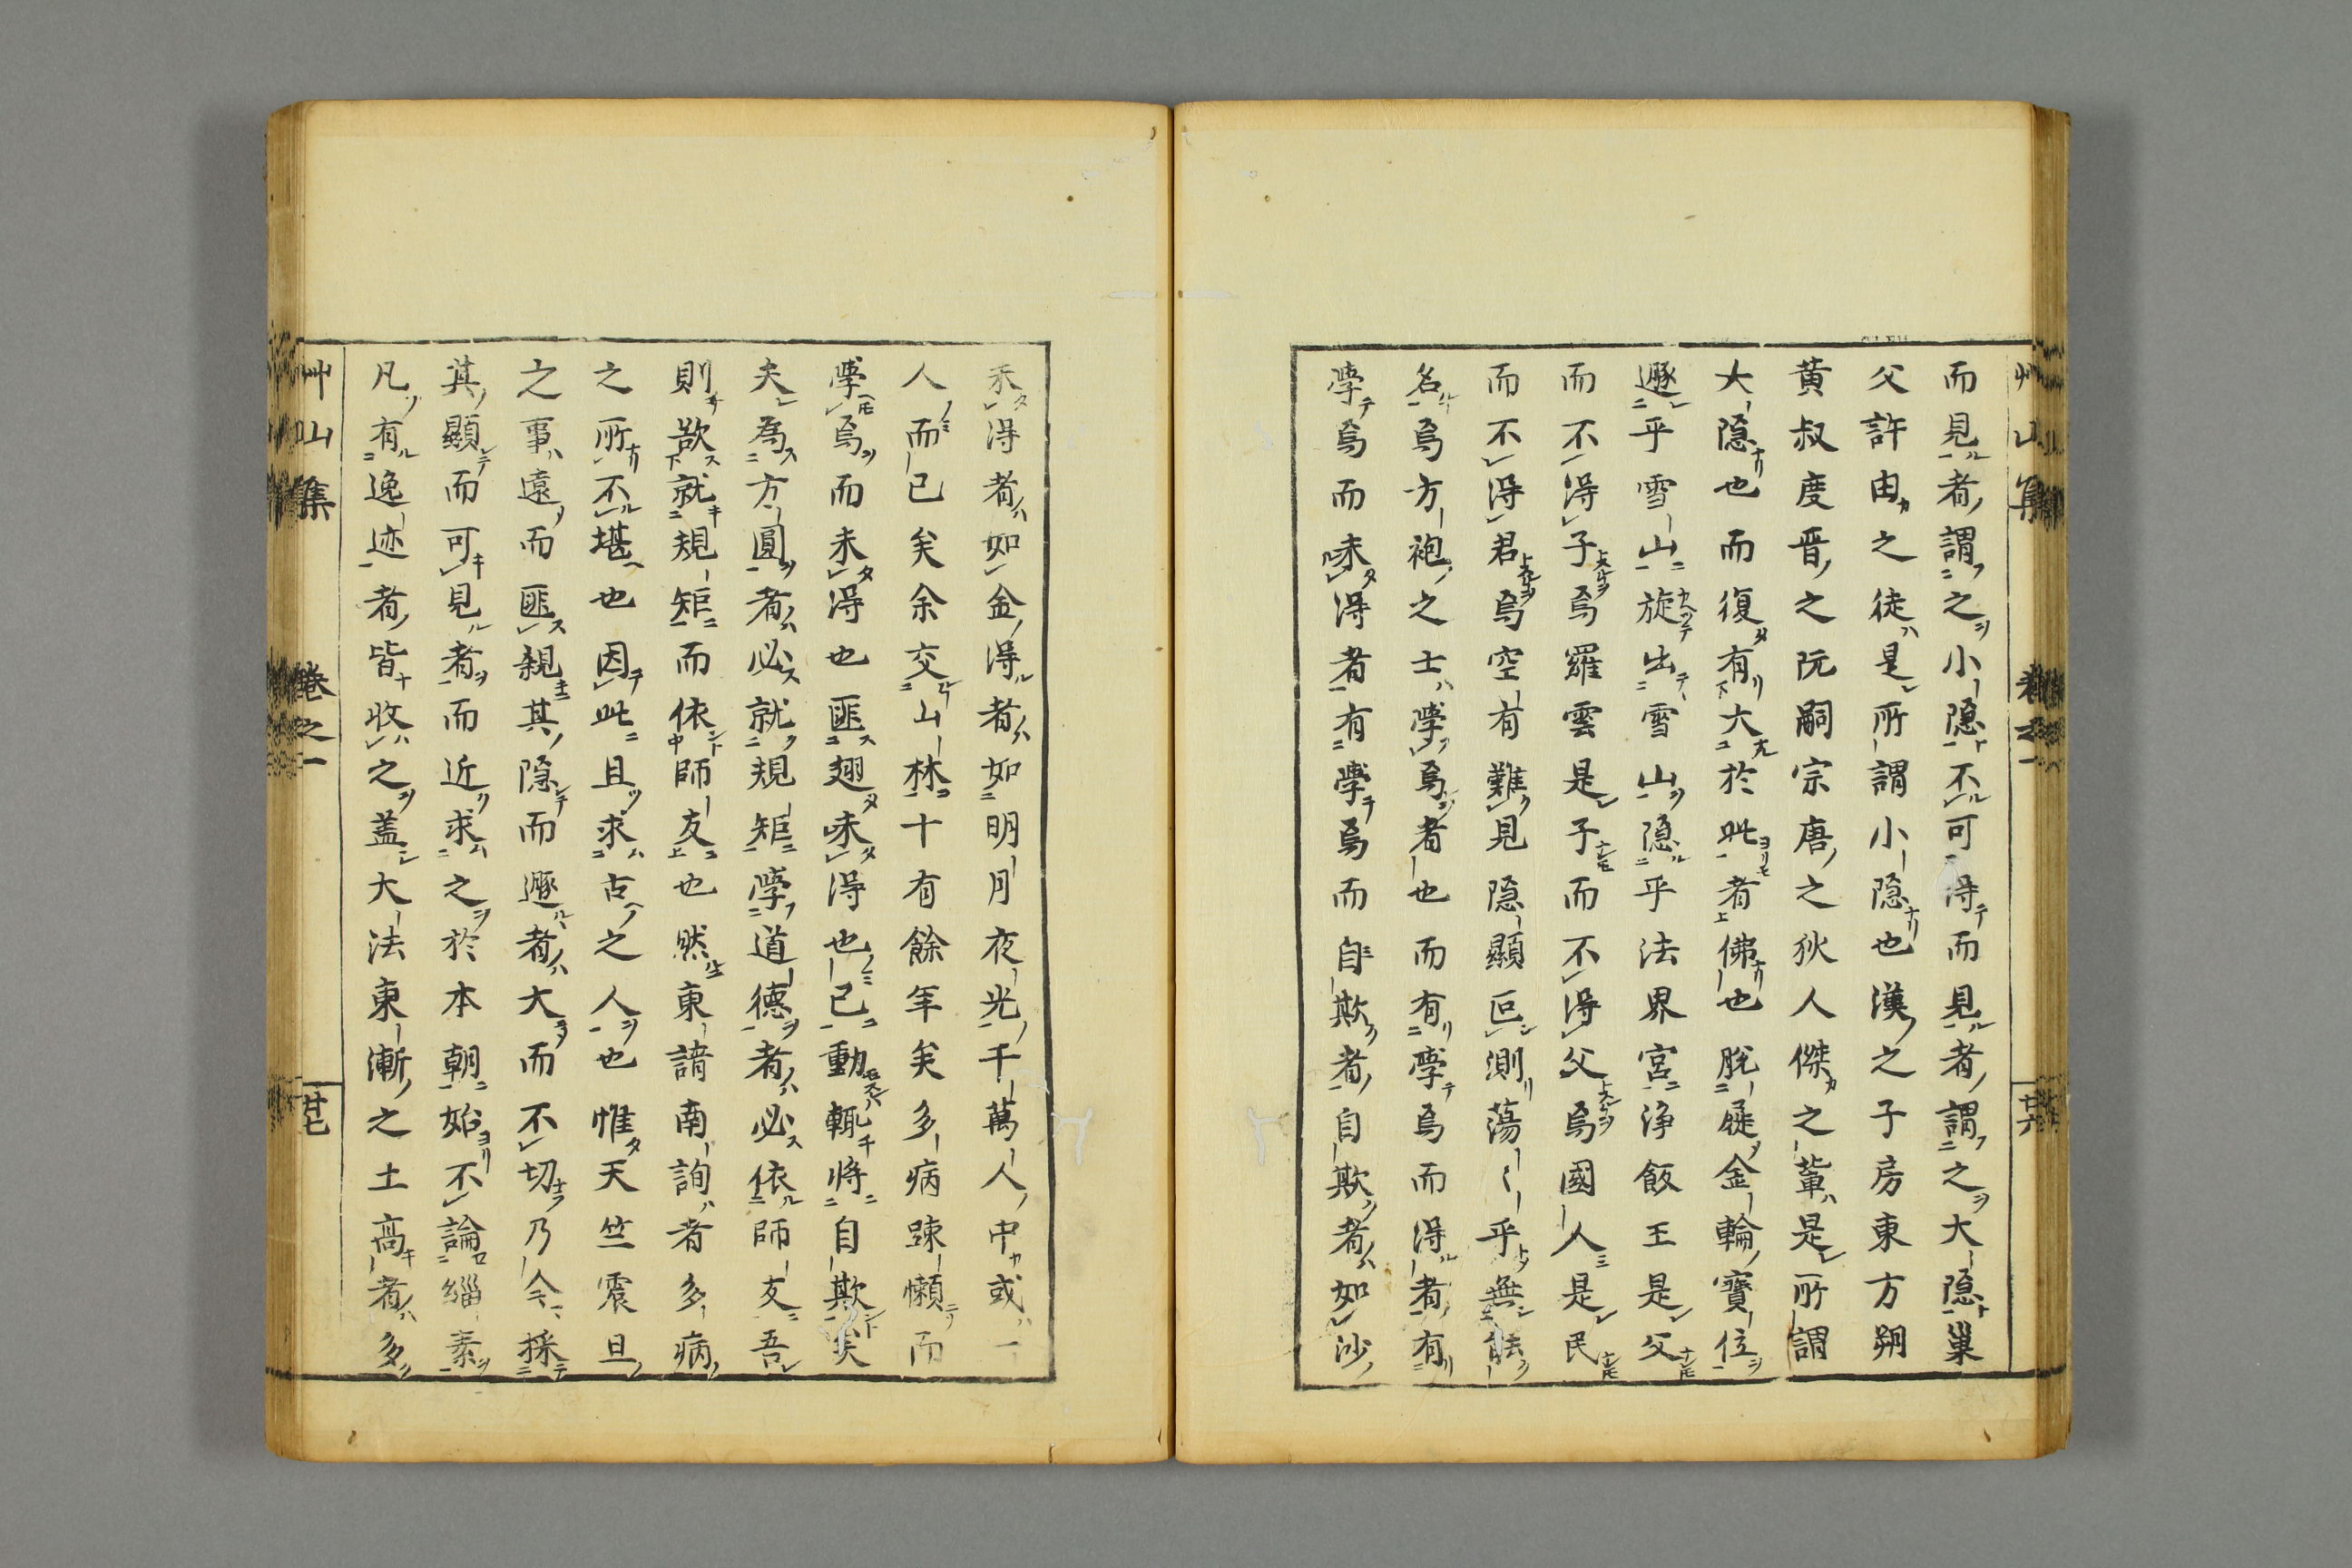 而見者謂之小隠不可得而見者謂之大隠巢
父許由之徒是所謂小隠也漢之子房東方朔
黄叔度晋之阮嗣宗唐之狄人傑之輩是所謂
大隠也而復有大於此者佛也脱屣金輪寶位
遯乎雪山旋出雪山隠乎法界宮浄飯王是父
而不得子焉羅雲是子而不得父焉國人是民
而不得君焉空有難見隠顯叵測蕩〱乎無能
名焉方袍之士學焉者也而有學焉而得者有
學焉而未得者有學焉而自欺者自欺者如沙
未得者如金得者如明月夜光千萬人中或一
人而已矣余交山林十有餘年矣多病踈懶而
學焉而未得也匪翅未得也已動輒將自欺矣
夫為方圓者必就規矩學道德者必依師友吾
則欲就規矩而依師友也然東諳南詢者多病
之所不堪也因此且求古之人也惟天竺震旦
之事遠而匪親其隠而遯者大而不切乃今採
其顯而可見者而近求之於本朝始不論緇素
凡有逸迹者皆收之盖大法東漸之土高者多
艸山集 卷之一 廿七